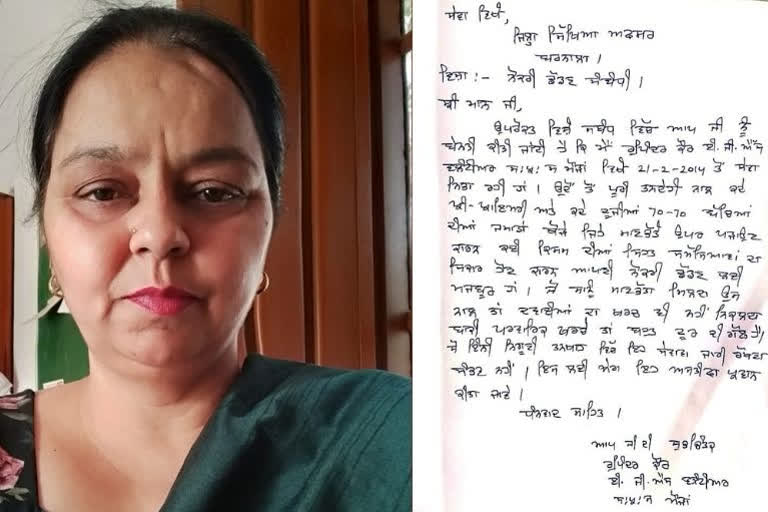 ਸੇਵਾ ਵਿਖੇ,
ਜ਼ਿਲ੍ਹਾ ਸਿੱਖਿਆ ਅਫਸਰ
ਬਰਨਾਲਾ।
ਵਿਸ਼ਾ :- ਨੌਕਰੀ ਛੱਡਣ ਸੰਬੰਧੀ।
ਸ਼੍ਰੀ ਮਾਨ ਜੀ,
ਉਪਰੋਕਤ ਵਿਸ਼ੇ ਸਬੰਧ ਵਿੱਚ ਆਪ ਜੀ ਨੂੰ
ਬੇਨਤੀ ਕੀਤੀ ਜਾਂਦੀ ਹੈ ਕਿ ਮੈਂ ਰੁਪਿੰਦਰ ਕੌਰ ਈ.ਜੀ.ਐੱਸ
ਵਲੰਟੀਅਰ ਸ:ਪ੍ਰ:ਸ ਵਿਖੇ 21-2-2014 ਤੋਂ ਸੇਵਾ
ਨਿਭਾ ਰਹੀ ਹਾਂ। ਉਦੋਂ ਤੋਂ ਪੂਰੀ ਤਨਦੇਹੀ ਨਾਲ ਕਦੇ
ਪ੍ਰੀ-ਪ੍ਰਾਇਮਰੀ ਅਤੇ ਕਦੇ ਦੂਜੀਆਂ 70-70 ਬੱਚਿਆਂ
ਦੀਆਂ ਜਮਾਤਾਂ ਥੋੜੇ ਜਿਹੇ ਮਾਣਭੱਤੇ ਉਪਰ ਪੜਾਉਣ
ਕਾਰਨ ਕਈ ਕਿਸਮ ਦੀਆਂ ਸਿਹਤ ਸਮੱਸਿਆਵਾਂ ਦਾ
ਸ਼ਿਕਾਰ ਹੋਣ ਕਾਰਨ ਆਪਣੀ ਨੌਕਰੀ ਛੱਡਣ ਲਈ
ਮਜਬੂਰ ਹਾਂ। ਜੋ ਸਾਨੂੰ ਮਾਣਭੱਤਾ ਮਿਲਦਾ ਉਸ
ਨਾਲ ਤਾਂ ਦਵਾਈਆਂ ਦਾ ਖਰਚ ਵੀ ਨਹੀਂ ਨਿਕਲਦਾ
ਬਾਕੀ ਪਰਵਾਰਿਕ ਖਰਚੇ ਤਾਂ ਬਹੁਤ ਦੂਰ ਦੀ ਗੱਲ ਹੈ,
ਸੋ ਇੰਨੀ ਨਿਗੂਣੀ ਤਨਖਾਹ ਵਿੱਚ ਇਹ ਸੇਵਾਵਾਂ ਜਾਰੀ ਰੱਖਣਾ
ਸੰਭਵ ਨਹੀਂ। ਇਸ ਲਈ ਮੇਰਾ ਇਹ ਅਸਤੀਫਾ ਪ੍ਰਵਾਨ
ਕੀਤਾ ਜਾਵੇ।
ਧੰਨਵਾਦ ਸਾਹਿਤ।
ਆਪ ਜੀ ਦੀ ਸ਼ੁਭਚਿੰਤਕ
ਰੁਪਿੰਦਰ ਕੌਰ
ਈ. ਜੀ. ਐਸ ਵਲੰਟੀਅਰ
ਸ:ਪ੍ਰ:ਸ